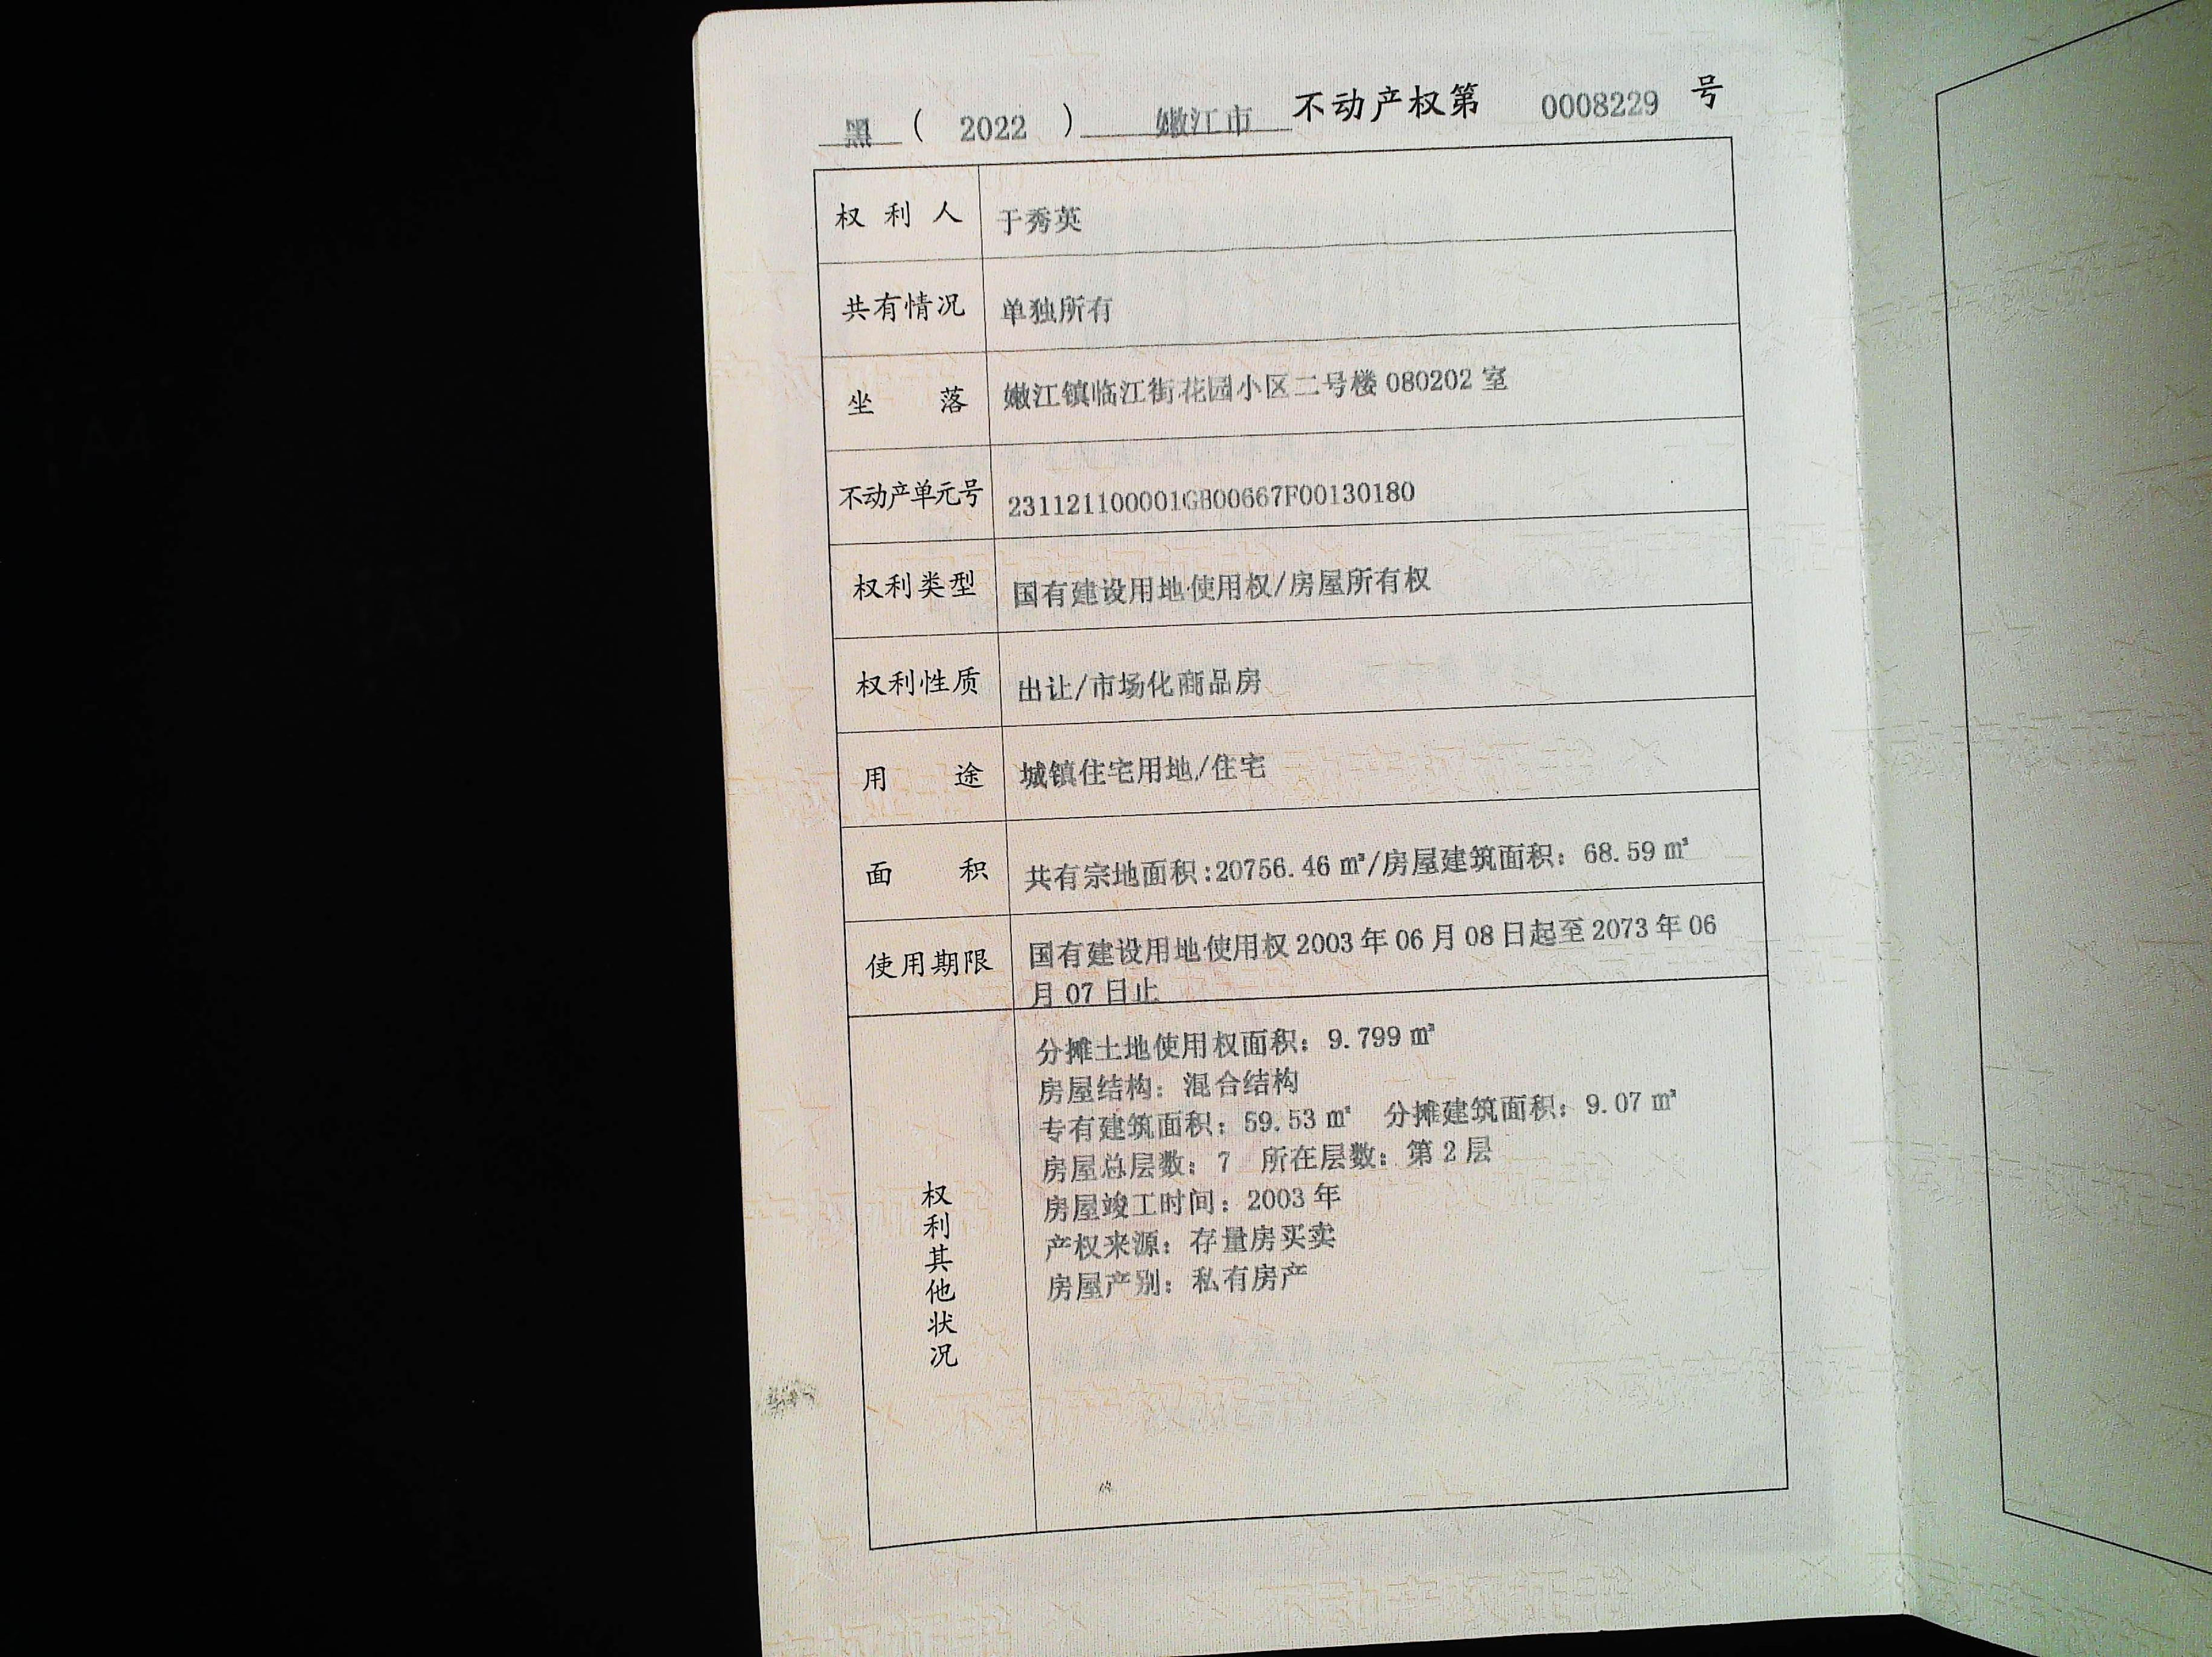 黑（2022）嫩江市不动产权第0008229号
权利人 于秀英
共有情况 单独所有
坐落 嫩江镇临江街花园小区二号楼080202室
不动产单元号 231121100001GB00667F00130180
权利类型 国有建设用地使用权/房屋所有权
权利性质 出让/市场化商品房
用途 城镇住宅用地/住宅
面积 共有宗地面积:20756.46㎡/房屋建筑面积：68.59㎡
使用期限 国有建设用地使用权2003年06月08日起至2073年06
月07日止
权利其他状况
分摊土地使用权面积：9.799㎡
房屋结构：混合结构
专有建筑面积：59.53㎡ 分摊建筑面积：9.07㎡
房屋总层数：7 所在层数：第2层
房屋竣工时间：2003年
产权来源：存量房买卖
房屋产别：私有房产